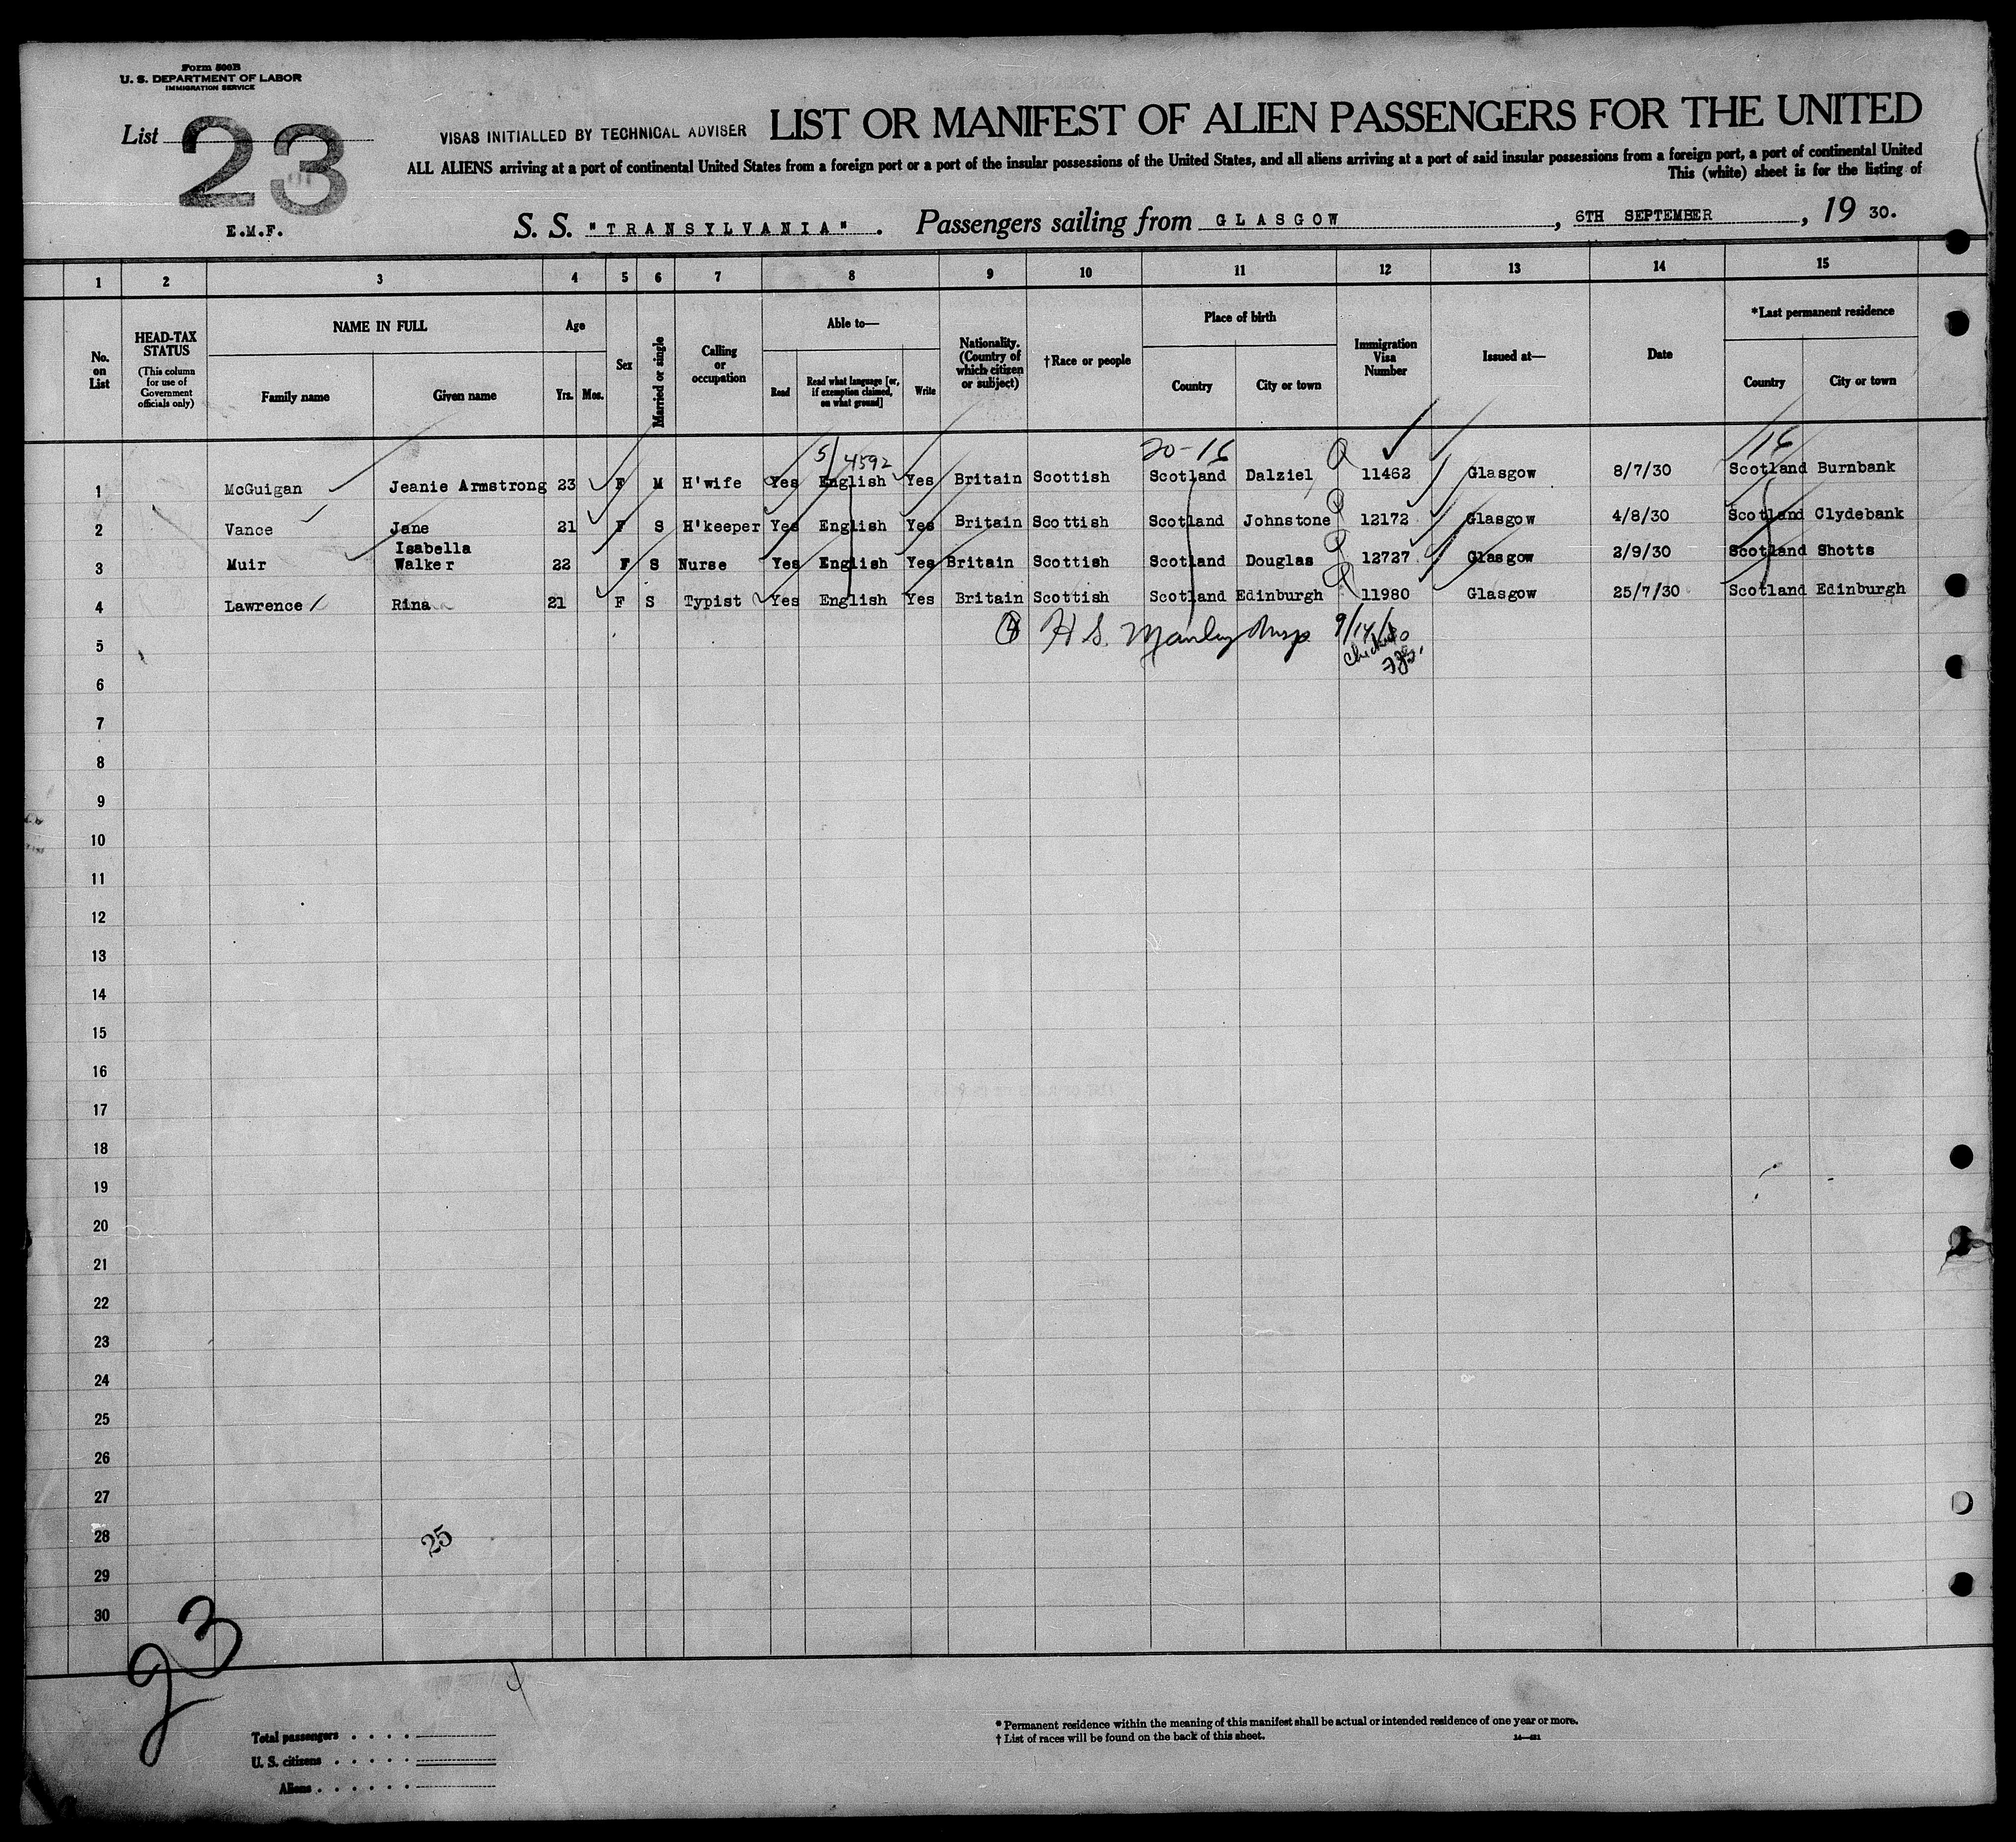 Form 500B
U. S. DEPARTMENT OF LABOR
IMMIGRATION SERVICE
List 23
VISAS INITIALLED BY TECHNICAL ADVISER
LIST OR MANIFEST OF ALIEN PASSENGERS FOR THE UNITED
ALL ALIENS arriving at a port of continental United States from a foreign port or a port of the insular possessions of the United States, and all aliens arriving at a port of said insular possessions from a foreign port, a port of continental United
This (white) sheet is for the listing of
E.M.F.
S. S. "TRANSYLVANIA". Passengers sailing from GLASGOW, 6TH SEPTEMBER, 19 30.
1 2 3 4 5 6 7 8 9 10 11 12 13 14 15
No. on List
HEAD-TAX STATUS
(This column for use of Government officials only)
NAME IN FULL
Family name Given name
Age
Yrs. Mos.
Sex
Married or single
Calling or occupation
Able to—
Read
Read what language [or, if exemption claimed, on what ground]
Write
Nationality. (Country of which citizen or subject)
†Race or people
Place of birth
Country City or town
Immigration Visa Number
Issued at—
Date
*Last permanent residence
Country City or town
5/4592 20-16 16
1 McGuigan Jeanie Armstrong 23 F M H'wife Yes English Yes Britain Scottish Scotland Dalziel 11462 Glasgow 8/7/30 Scotland Burnbank
2 Vance Jane 21 F S H'keeper Yes English Yes Britain Scottish Scotland Johnstone 12172 Glasgow 4/8/30 Scotland Clydebank
3 Muir Isabella Walker 22 F S Nurse Yes English Yes Britain Scottish Scotland Douglas 12727 Glasgow 2/9/30 Scotland Shotts
4 Lawrence Rina 21 F S Typist Yes English Yes Britain Scottish Scotland Edinburgh 11980 Glasgow 25/7/30 Scotland Edinburgh
5 H S. Manley Insp 9/14/
6
7
8
9
10
11
12
13
14
15
16
17
18
19
20
21
22
23
24
25
26
27
28 25
29
30
23
Total passengers
U. S. citizens
Aliens
* Permanent residence within the meaning of this manifest shall be actual or intended residence of one year or more.
† List of races will be found on the back of this sheet.